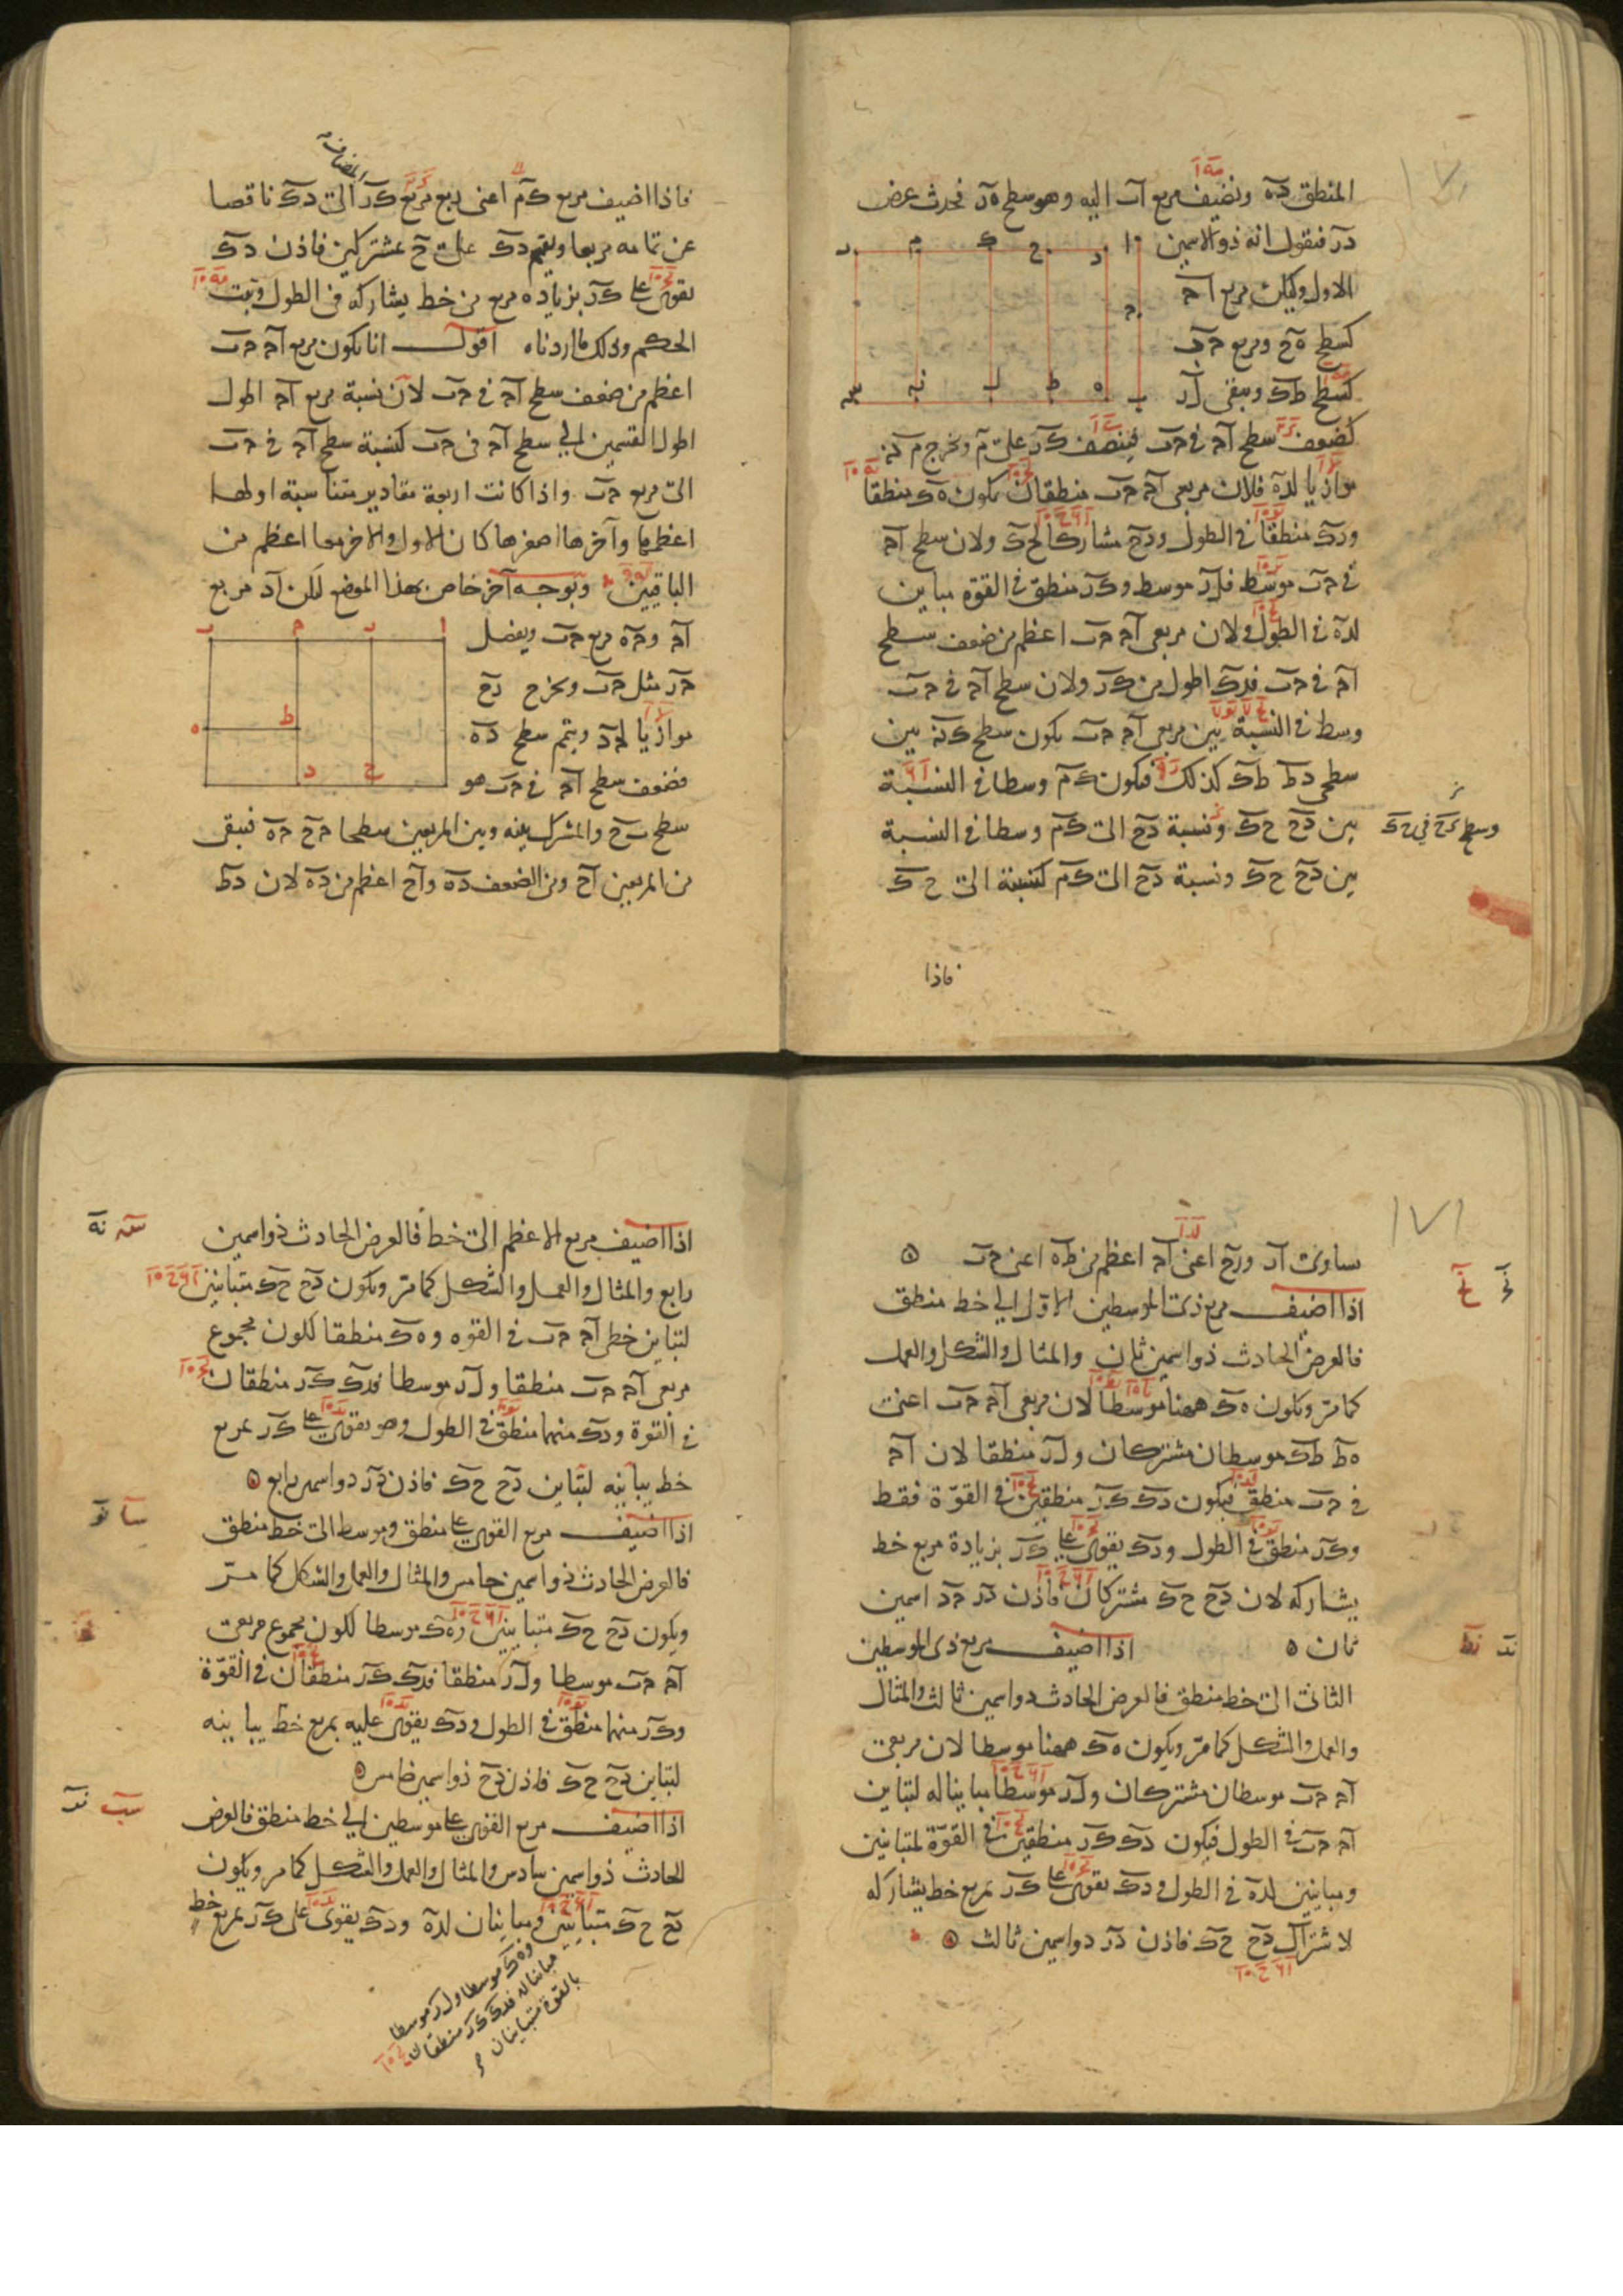 المنطق ده ونضيف مربع اب اليه وهو سطح هر فحدث عرض
در فنقول انه ذو الاسمين
الاول وليكن مربع اح
كسطح هح ومربع حب
كسطح طك ويبقى لر
كضعف سطح اح في حب فينصف كر على م ونخرج م نه
موازيا لده فلان مربعي اح حب منطقان يكون ه ك منطقا
ودك منطقا في الطول ودح مشاركا لحك ولان سطح اح
في حب موسط فلر موسط وكر منطق في القوة مباين
لده في الطول ولان مربعي اح حب اعظم من ضعف سطح
اح في حب فدك اطول من كر ولان سطح اح في حب
وسط في النسبة بين مربعي اح حب يكون سطح ك نه بين
سطحي دط طك كذلك فيكون كم وسطا في النسبة
بين دح حك ونسبة دح الى كم وسطا في النسبة
بين دح حك ونسبة دح الى كم كنسبة الى ح ك
وسطح دح في حك
فاذا
المضاف
فاذا اضيف مربع كم اعنى ربع مربع كر الى دك ناقصا
عن تمامه مربعا ويقسم دك على ح بمشتركين فاذن دك
يقوى على كر بزيادة مربع من خط يشاركه في الطول وثبت
الحكم وذلك ما اردناه اقول انا يكون مربع اح حب
اعظم من ضعف سطح اح في حب لان نسبة مربع اح اطول
اطول القسمين الى سطح اح في حب كنسبة سطح اح في حب
الى مربع حب واذا كانت اربعة مقادير متناسبة اولها
اعظمها وآخرها اصغرها كان الاول والاخر معا اعظم من
الباقيين وبوجه آخر خاص بهذا الموضع ليكن اد مربع
اح وحه مربع حب ويفصل
حر مثل حب ونخرج رح
موازيا لحد ويتم سطح ده
فضعف سطح اح في حب هو
سطح بح والمشترك بينه وبين المربعين سطحا حح حه فيبقى
من المربعين اح ومن الضعف ده واح اعظم من ده لان دط
١٧١
يساوى ار ورح اعنى اح اعظم من طه اعنى حب ه
اذا اضيف مربع ذى الموسطين الاول الى خط منطق
فالعرض الحادث ذو اسمين ثان والمثال والشكل والعمل
كما مر ويكون ه ك ههنا موسطا لان مربعي اح حب اعنى
ه ط طك موسطان مشتركان ولر منطقا لان اح
في حب منطق فيكون دك كر منطقين في القوة فقط
وكر منطق في الطول ودك يقوى على كر بزيادة مربع خط
يشاركه لان دح حك مشتركان فاذن در حد اسمين
ثان ه اذا اضيف مربع ذى الموسطين
الثانى الى خط منطق فالعرض الحادث ذو اسمين ثالث والمثال
والعمل والشكل كما مر ويكون ه ك ههنا موسطا لان مربعي
اح حب موسطان مشتركان ولر موسطا مباينا له لتباين
اح حب في الطول فيكون دك كر منطقين في القوة لمتباينين
ومباينين لده في الطول ودك يقوى على كر بمربع خط يشاركه
لاشتراك دح حك فاذن در ذو اسمين ثالث ه
اذا اضيف مربع الاعظم الى خط فالعرض الحادث ذو اسمين
رابع والمثال والعمل والشكل كما مر ويكون دح حك متباينين
لتباين خطى اح حب في القوه وه ك منطقا لكون مجموع
مربعي اح حب منطقا ولر موسطا فدك كر منطقان
في القوة ودك منهما منطق في الطول وهو يقوى على كر بمربع
خط يباينه لتباين دح حك فاذن در ذو اسمين رابع ه
اذا اضيف مربع القوى على منطق وموسط الى خط منطق
فالعرض الحادث ذو اسمين خامس والمثال والعمل والشكل كما مر
ويكون دح حك متباينين وه ك موسطا لكون مجموع مربعي
اح حب موسطا ولر منطقا فدك كر منطقان في القوة
وكر منهما منطق في الطول ودك يقوى عليه بمربع خط يباينه
لتباين دح حك فاذن دح ذو اسمين خامس ه
اذا اضيف مربع القوى على موسطين الى خط منطق فالعرض
الحادث ذو اسمين سادس والمثال والعمل والشكل كما مر ويكون
دح حك متباينين ومباينان لده ودك يقوى على كر بمربع خط
وه ك موسطا ولر موسطا
مباينا له فدك كر منطقان
بالقوة متباينان